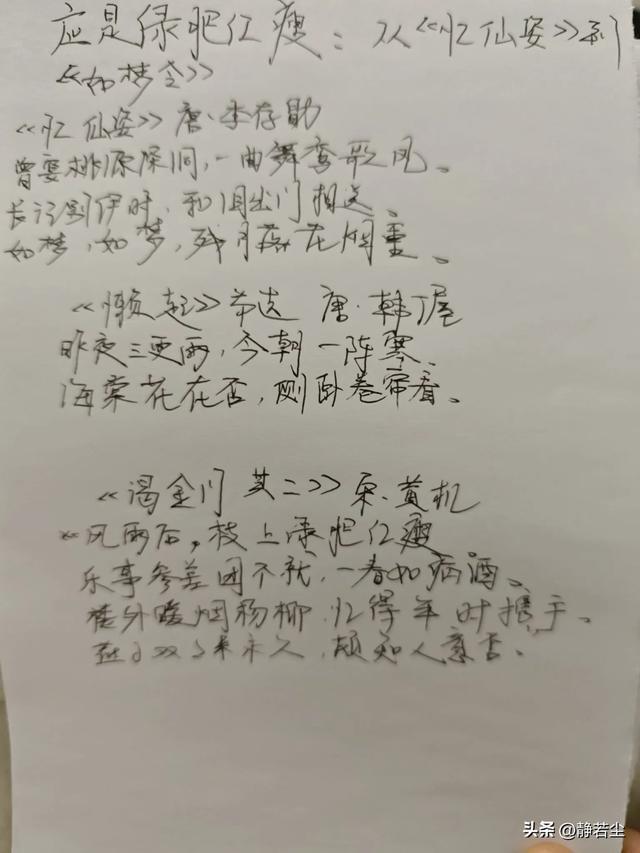 应是绿肥红瘦：从《忆仙姿》到
《如梦令》
《忆仙姿》唐·李存勖
曾宴桃源深洞，一曲舞鸾歌凤。
长记别伊时，和泪出门相送。
如梦，如梦，残月落花烟重。
《懒起》节选 唐·韩偓
昨夜三更雨，今朝一阵寒。
海棠花在否，侧卧卷帘看。
《谒金门 其二》宋·黄机
风雨后，枝上绿肥红瘦
乐事参差团不就，一春如病酒。
楼外暖烟杨柳，忆得年时携手。
燕子双双来未久，颇知人意否。
头条 @静若尘